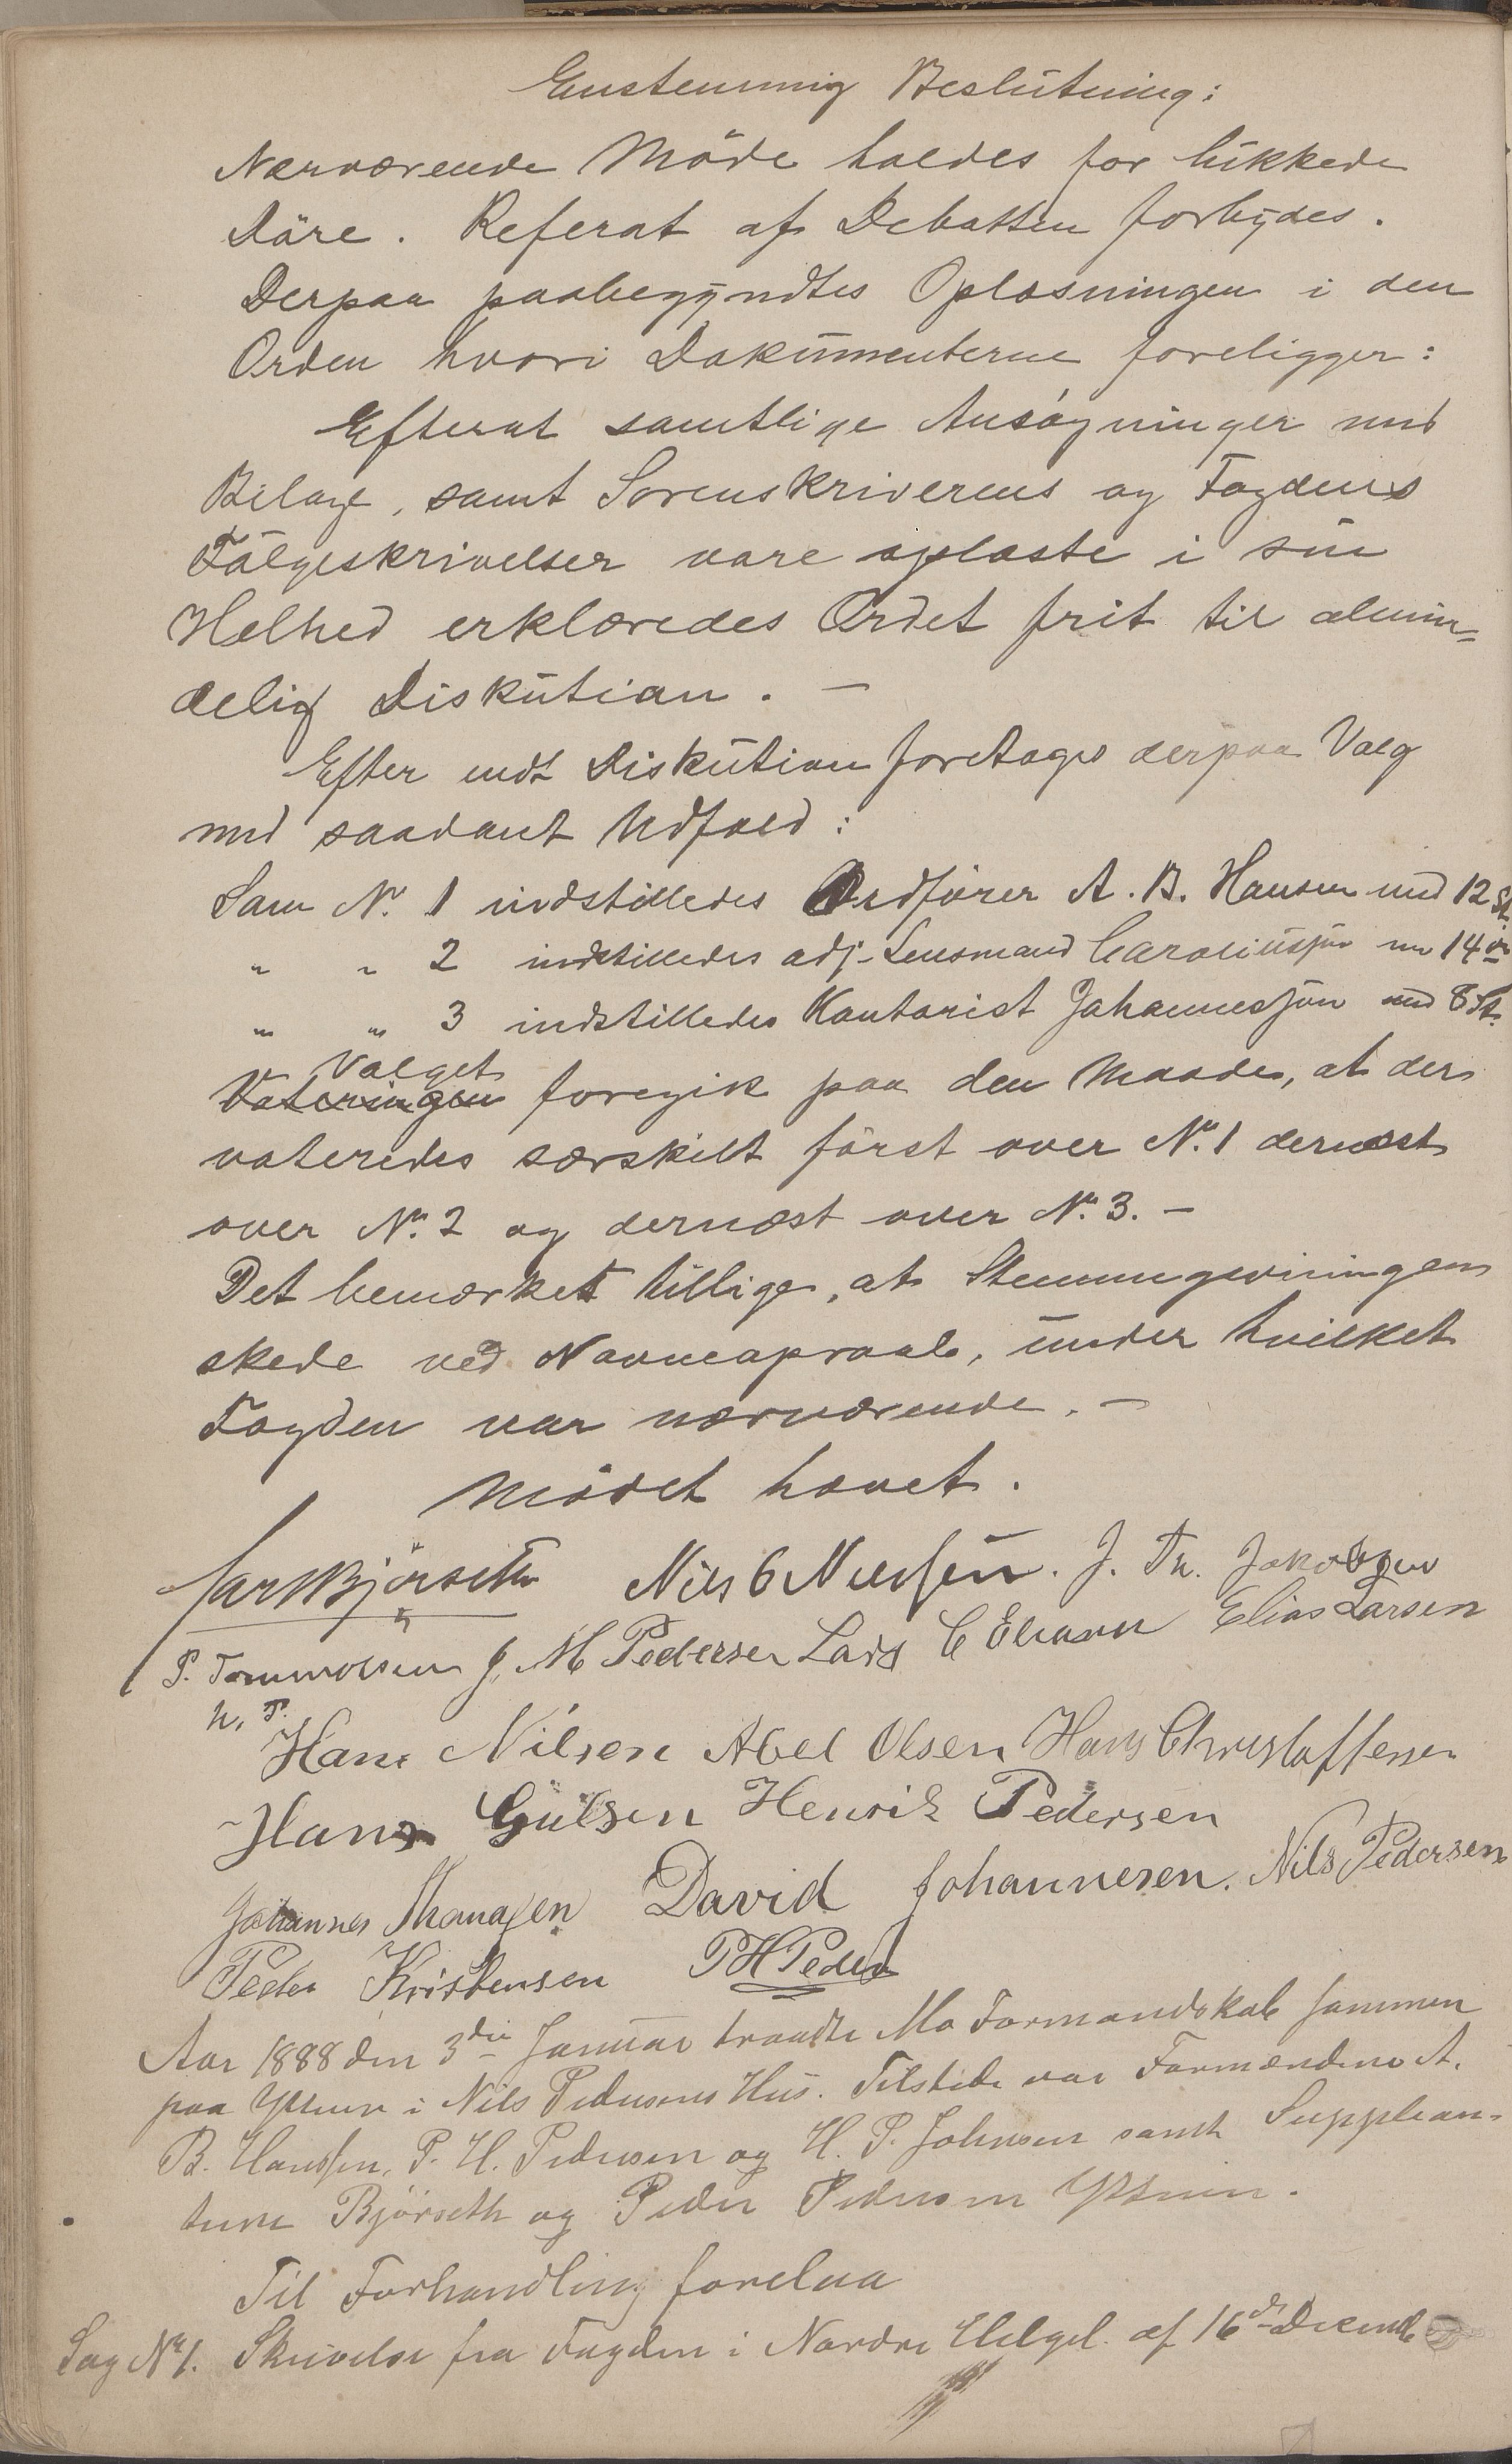 Enstemmig Beslutning:
Nærværende Möde holdes for lukkede
Döre. Referat af Debatten forbydes.
Derpaa paabegyndtes Oplæsningen i den
Orden hvori Dokumenterne foreligger:
Efterat samtlige Ansøgninger med
Bilag, samt Sorenskriverens og Fogdens
Fölgeskrivelser vare oplæste i sin
Helhed erklæredes Ordet frit til almin=
delig Diskution. —
Efter endt Diskution foretages derpaa Valg
med saadant Udfald:
Som No. 1 indstilledes Ordförer A. B. Hansen med 12 St.
" " 2 indstilledes adj. Lensmand Caroliussen 14
" " 3 indstilledes Kontorist Johannessön med 8 St.
Valget
Voteringen foregik paa den Maade, at der
voteredes særskilt först over No. 1 dernæst
over No. 2 og dernæst over No. 3. —
Det bemærket tillige, at Stemmegivningen
skede ved Navneopraab, under hvilket
Fogden var nærværende. —
Mödet hævet.
Lars Björseth Nils C Nilssen. J. Th. Jakobsen
P. Tommesen J. M Pedersen Lars C Eliasen Elias Larsen
Hans Nilsen Abel Olsen Hans Christoffersen
Hans Gulsen Henrik Pedersen
Johannes David Johannesen. Nils Pedersen
Peder Kristensen P H Peders
Aar 1888 den 3die Januar traadte Mo Formandskab sammen
paa Ytteren i Nils Pedersens Hus. Tilstede var Formændene A.
B. Hanssen, P. H. Pedersen og H. P. Johnsen samt Supplean-
terne Björseth og Peder Pedersen Ytteren.
Til Forhandling forelaa
Sag No 1. Skrivelse fra Fogden i Nordre Helgel. af 16de Decemb